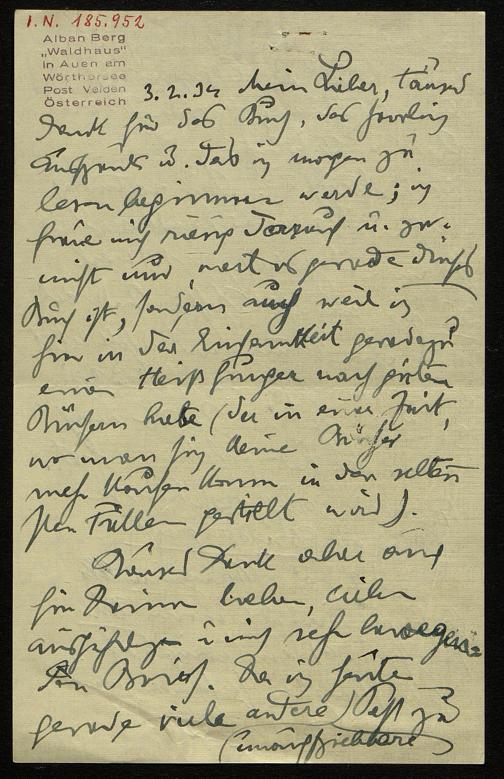 I. N. 185.952
Alban Berg
„Waldhaus"
in Auen am
Wörthersee
Post Velden
Österreich
3. 2. 34 Mein Lieber, tausend
Dank für das Buch, das soeben
u. das ich morgen zu
lesen beginnen werde; ich
freue mich riesig darauf u. zw.
nicht nur, weil es gerade dieses
Buch ist, sondern auch weil ich
hier in der Einsamkeit geradezu
einen Heißhunger nach guten
Büchern habe (der in einer Zeit,
wo man sich keine Bücher
mehr kaufen kann in den selten-
sten Fällen gestillt wird).
Tausend Dank aber auch
für Deinen lieben, lieben
ausführlichen u. mich sehr bewegen-
den Brief. Da ich heute
gerade viele andere) Post zu
(unaufschiebbare